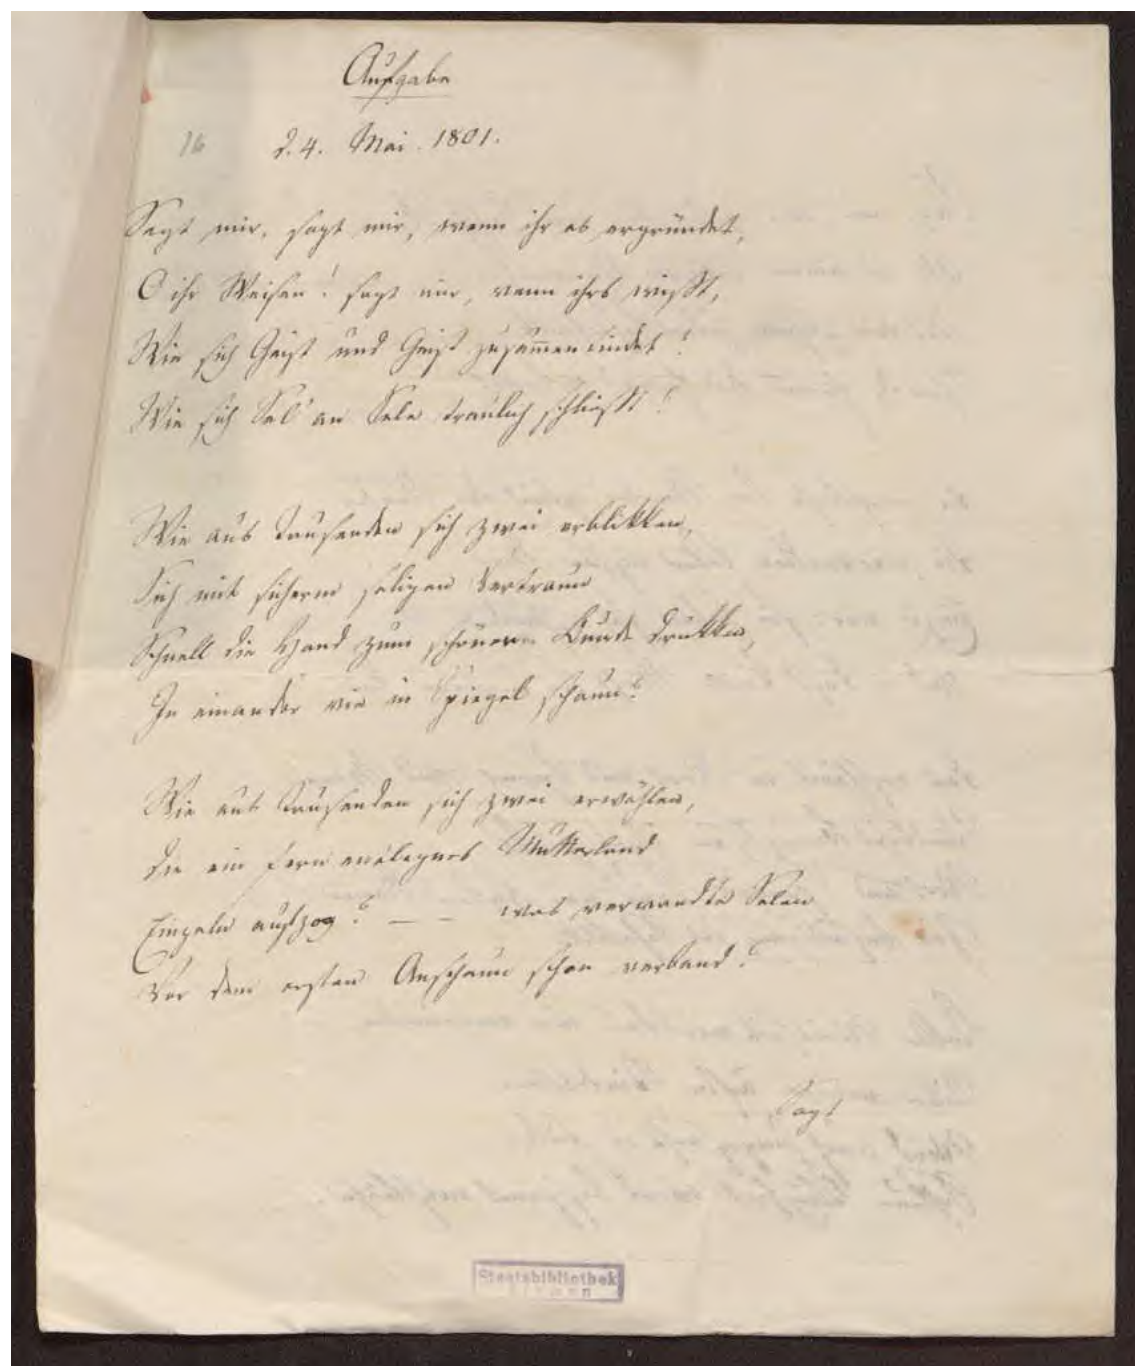 Aufgabe
16
d. 4. Mai. 1801.
Sagt mir, sagt mir, wenn ihr es ergründet,
O ihr Weisen! sagt mir, wenn ihrs wisst,
Wie sich Geist und Geist zusam̄en findet?
Wie sich Sel' an Sele traulich schliesst?
Wie aus Tausenden sich zwei erblikken,
Sich mit sicherm seligen Vertraun
Schnell die Hand zum schönern Bunde drükken,
In einander wie in Spiegel schaun?
Wie aus Tausenden sich zwei erwählen,
Die ein fern entlegnes Mutterland
Einzeln aufzog? — — was verwandte Selen
Vor dem ersten Anschaun schon verband?
Sagt
Staatsbibliothek
Bremen